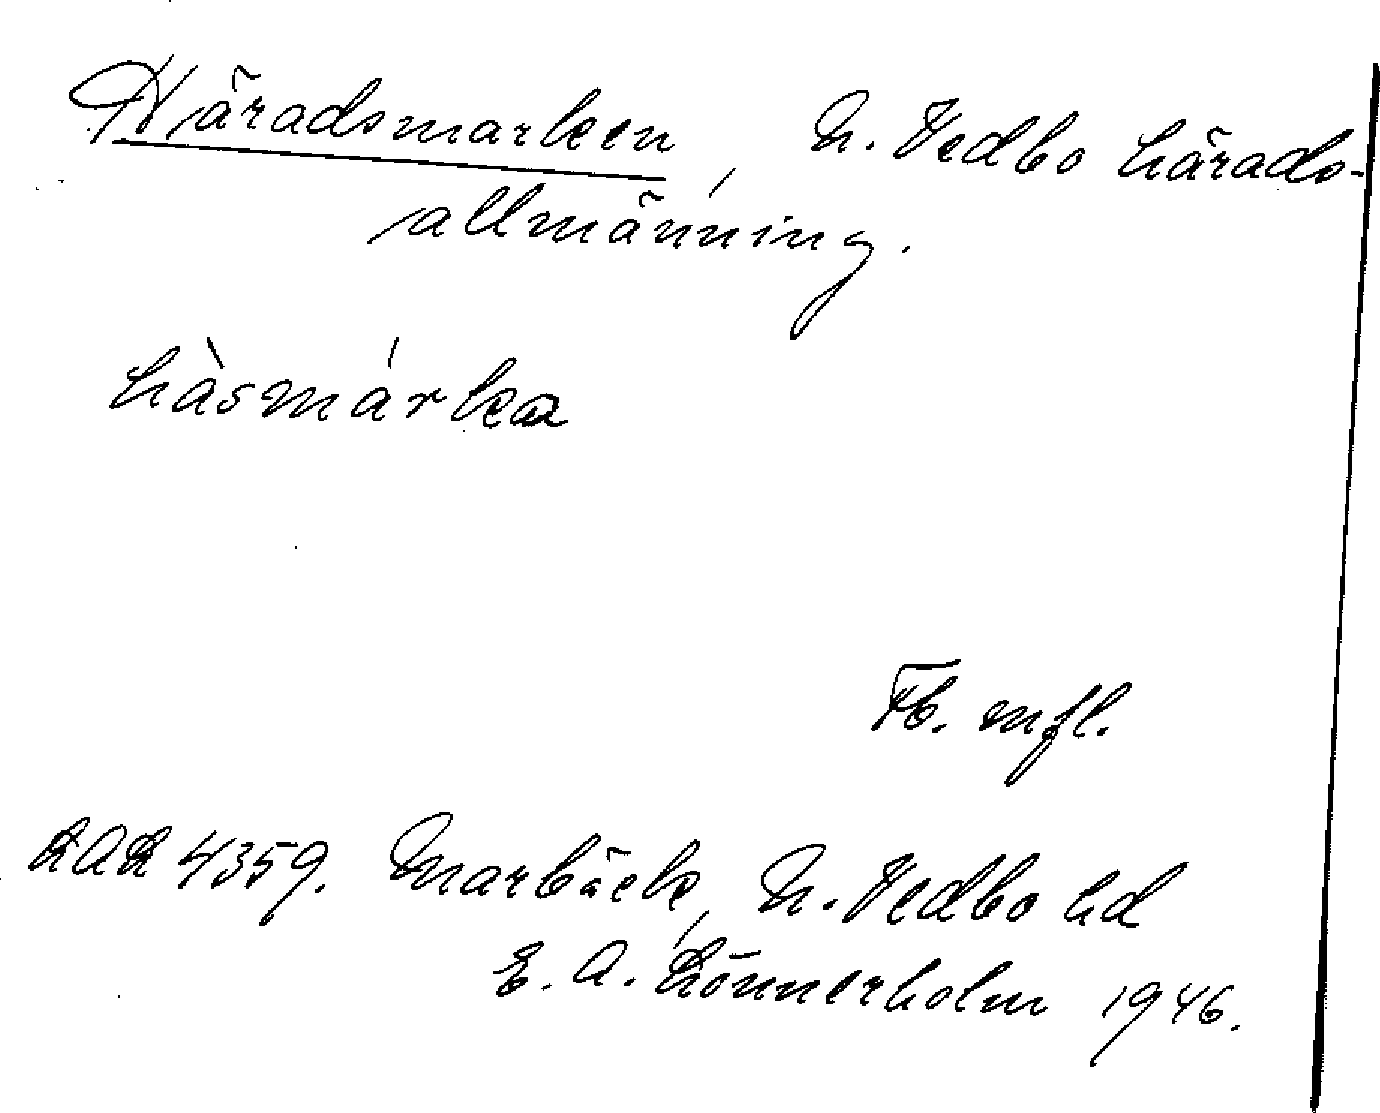 Häradsmarken, N. Vedbo härads-
allmänning.
hàsmárka
Fb. mfl.
4359. Marbäck, N. Vedbo hd
E. A. Lönnerholm 1946.